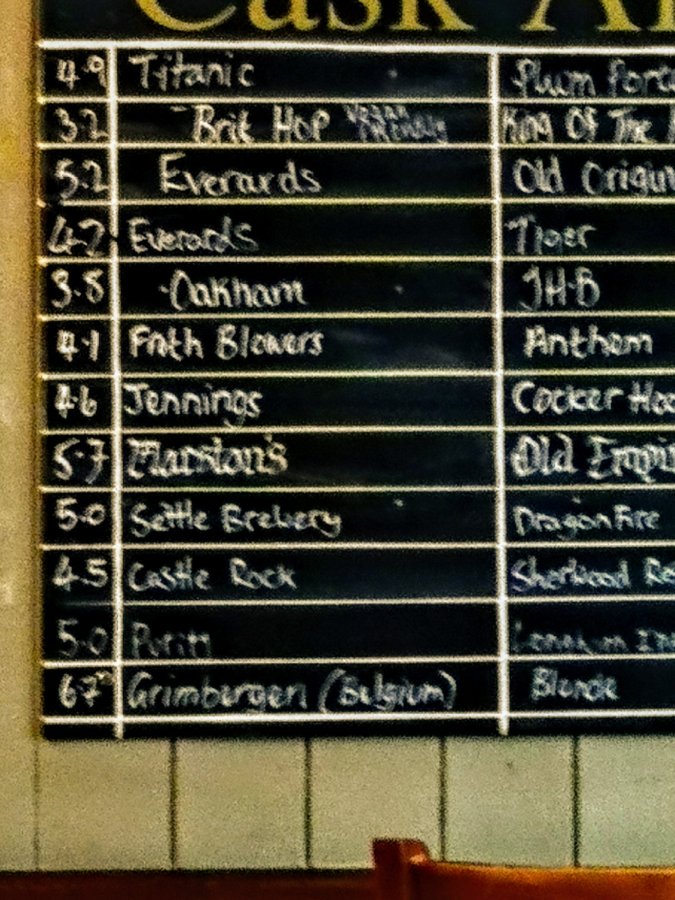 Cask A
4.9 Titanic Plum Porte
3.2 Brit Hop VEGAN FRIENDLY King Of The
5.2 Everards Old Origin
4.2 Everards Tiger
3.8 Oakham JHB
4.1 Froth Blowers Anthem
4.6 Jennings Cocker Hoo
5.7 Marston's Old Empir
5.0 Settle Brewery Dragon Fire
4.5 Castle Rock Sherwood Re
5.0
6.7 Grimbergen (Belgium) Blonde